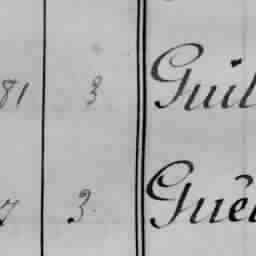 81 3 Guil
7 3 Guê